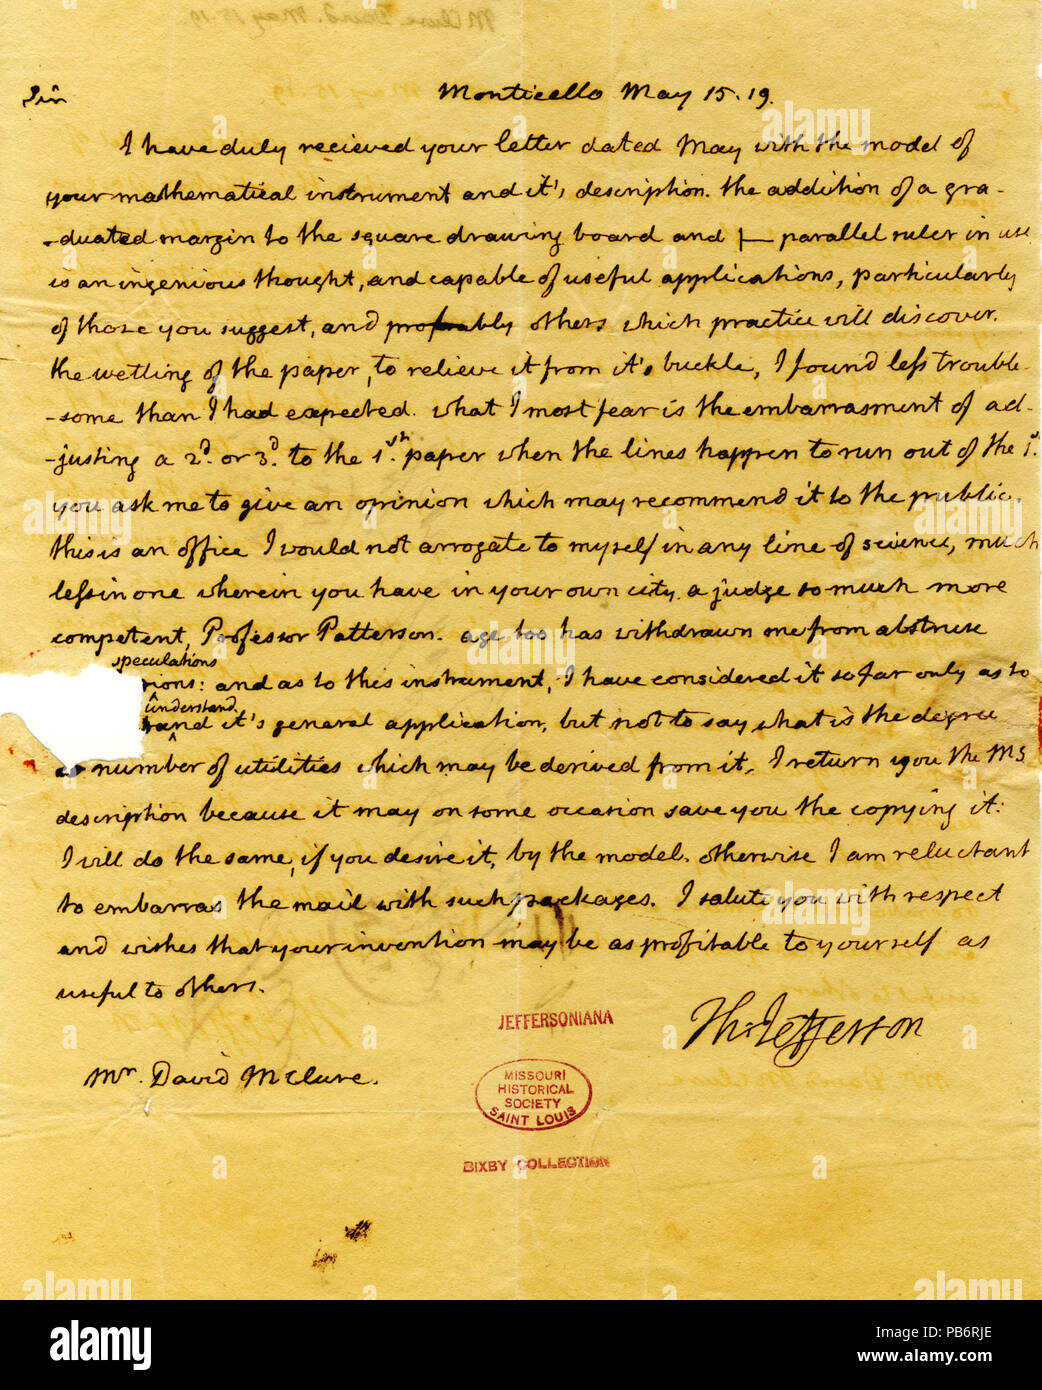 McClure David. May 15. 19
Sir
Monticello May 15. 19.
I have duly recieved your letter dated May with the model of
your mathematical instrument and it's description. the addition of a gra-
-duated margin to the square drawing board and |— parallel ruler in use
is an ingenious thought, and capable of useful applications, particularly
of those you suggest, and probably others which practice will discover.
the wetting of the paper, to relieve it from it's buckle, I found less trouble-
-some than I had expected. what I most fear is the embarrasment of ad-
-justing a 2d. or 3d. to the 1st. paper when the lines happen to run out of the 1st.
you ask me to give an opinion which may recommend it to the public.
this is an office I would not arrogate to myself in any line of science, much
less in one wherein you have in your own city a judge so much more
competent, Professor Patterson. age too has withdrawn me from abstruse
speculations
tions: and as to this instrument, I have considered it so far only as to
understand
and it's general application, but not to say what is the degree
or number of utilities which may be derived from it. I return you the MS
description because it may on some occasion save you the copying it:
I will do the same, if you desire it, by the model. otherwise I am reluctant
to embarras the mail with such packages. I salute you with respect
and wishes that your invention may be as profitable to yourself as
useful to others.
Th: Jefferson
JEFFERSONIANA
Mr. David McClure.
MISSOURI
HISTORICAL
SOCIETY
SAINT LOUIS
BIXBY COLLECTION
alamy
a alamy
Image ID: PB6RJE
www.alamy.com